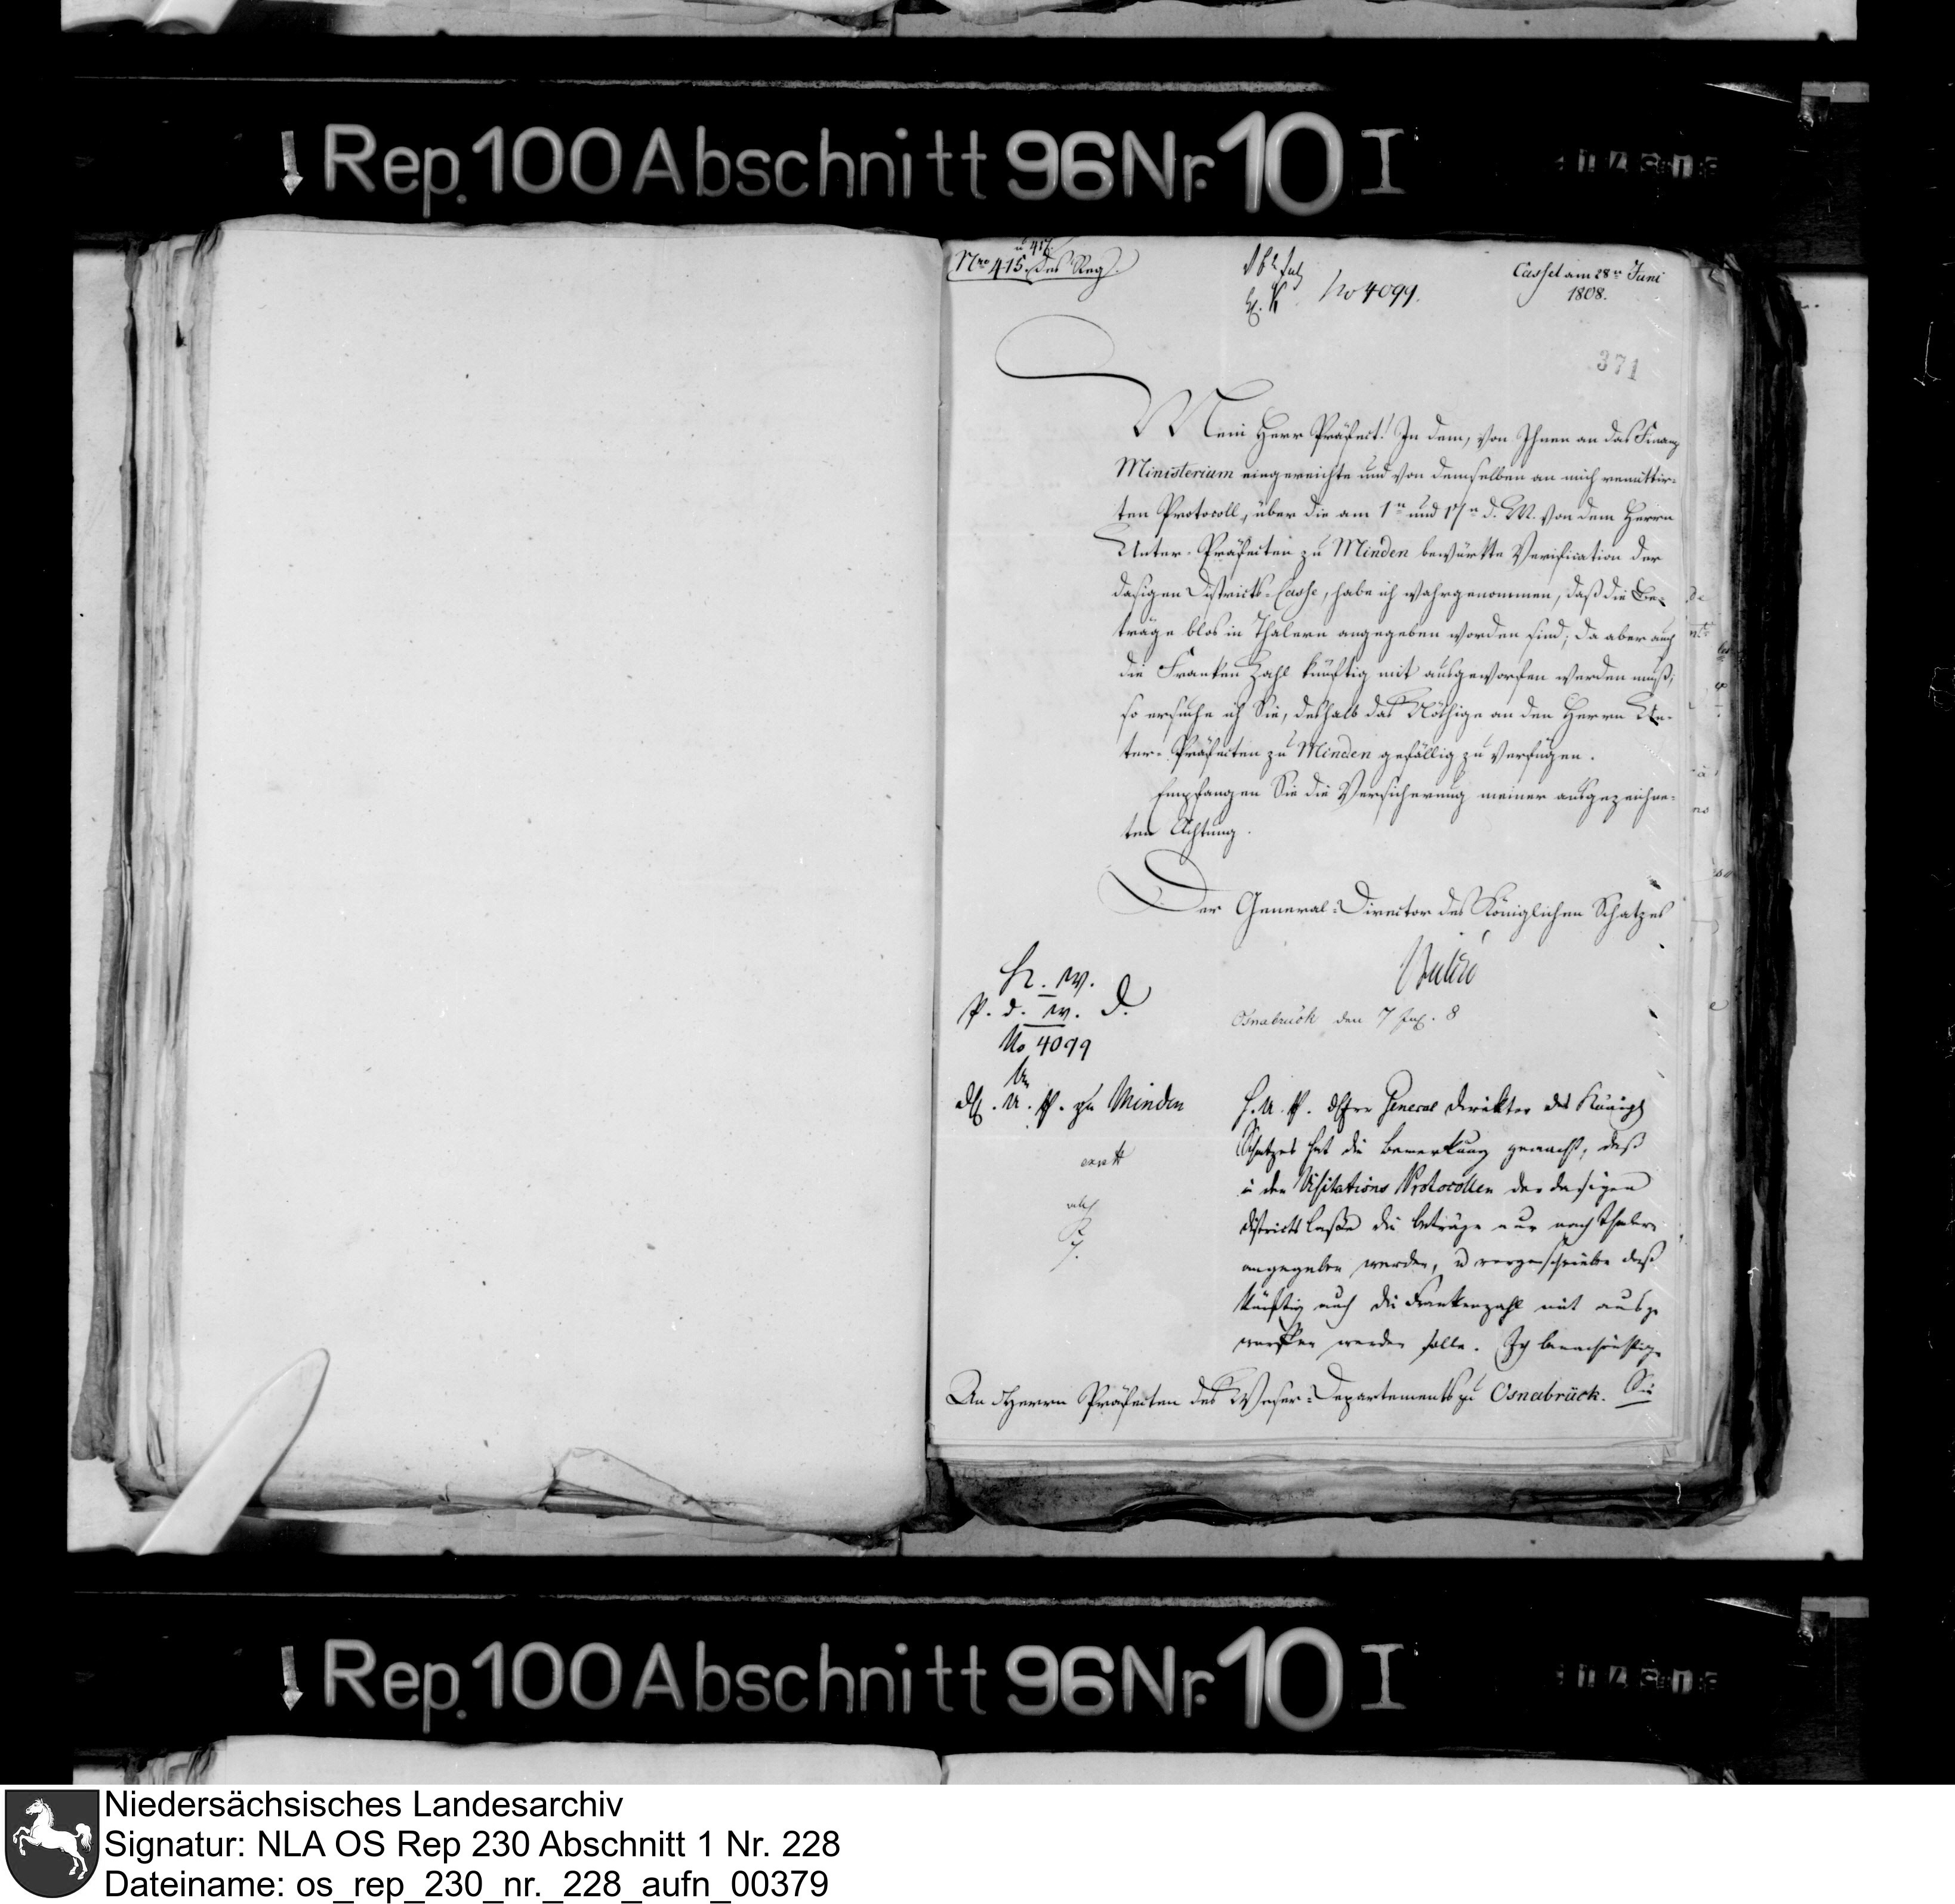 Rep. 100 Abschnitt 96 Nr. 10 I
u 417.
Nro 415. des Reg.
No 4099.
Cassel am 28n Juni
1808.
371
Mein Herr Präfect! In dem, von Ihnen an das Finanz
Ministerium eingereichte und von demselben an mich remittir-
ten Protocoll, über die am 1n und 17n d. M. von dem Herrn
Unter-Präfecten zu Minden bewürkte Verification der
dasigen Districts-Casse, habe ich wahrgenommen, daß die Be-
träge blos in Thalern angegeben worden sind; da aber auch
die Franken Zahl künftig mit ausgeworfen werden muß,
so ersuche ich Sie, deshalb das Nöthige an den Herrn Un-
ter-Präfecten zu Minden gefällig zu verfügen.
Empfangen Sie die Versicherung meiner ausgezeichne-
ten Achtung.
Der General-Director des Königlichen Schatzes
Osnabruck den 7 Jul. 8
P. d. W. D.
No 4099
U. P. zu Minden
H. U. P. Der General Direktor des Königl
Schatzes hat die Bemerkung gemacht, daß
in den Visitations Protocollen der dasigen
Districts Casse die Beträge nur nach Thalern
angegeben werden, u vorgeschrieben daß
künftig auch die Frankenzahl mit ausge
worfen werden solle. Ich benachrichtige
Sie
An Herrn Präfecten des Weser-Departements zu Osnabrück.
Rep. 100 Abschnitt 96 Nr. 10 I
Niedersächsisches Landesarchiv
Signatur: NLA OS Rep 230 Abschnitt 1 Nr. 228
Dateiname: os_rep_230_nr._228_aufn_00379